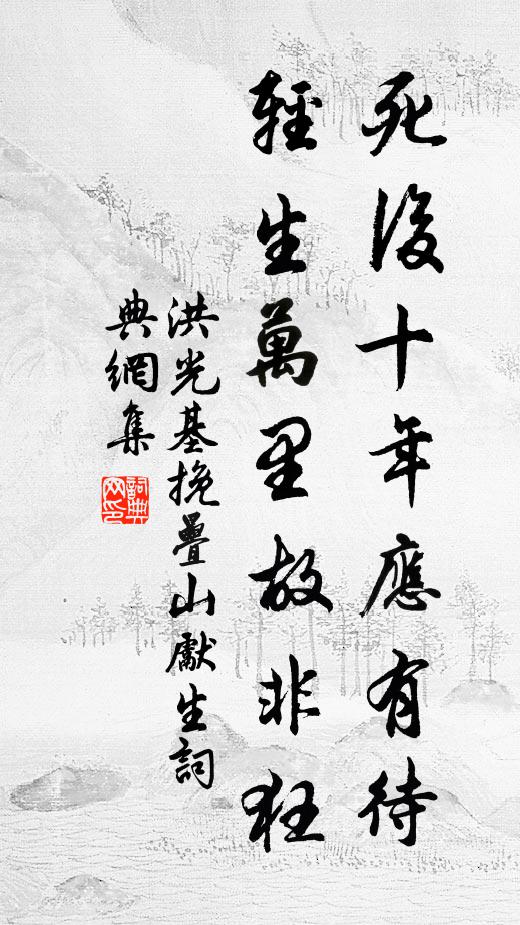 死後十年應有待
輕生萬里故非狂
洪光基挽疊山獻生詞
典網集
詞典
网印